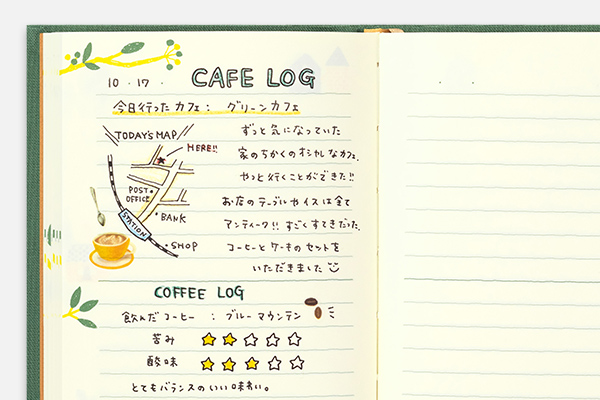 10 . 17 . CAFE LOG
今日行ったカフェ： グリーンカフェ
TODAY'S MAP
HERE!!
POST OFFICE
BANK
STATION
SHOP
ずっと気になっていた
家のちかくのオシャレなカフェ。
やっと行くことができた!!
お店のテーブルやイスは全て
アンティーク!! すごくすてきだった。
コーヒーとケーキのセットを
いただきました
COFFEE LOG
飲んだコーヒー ： ブルーマウンテン
苦み ★★☆☆☆
酸味 ★★★☆☆
とてもバランスのいい味わい。